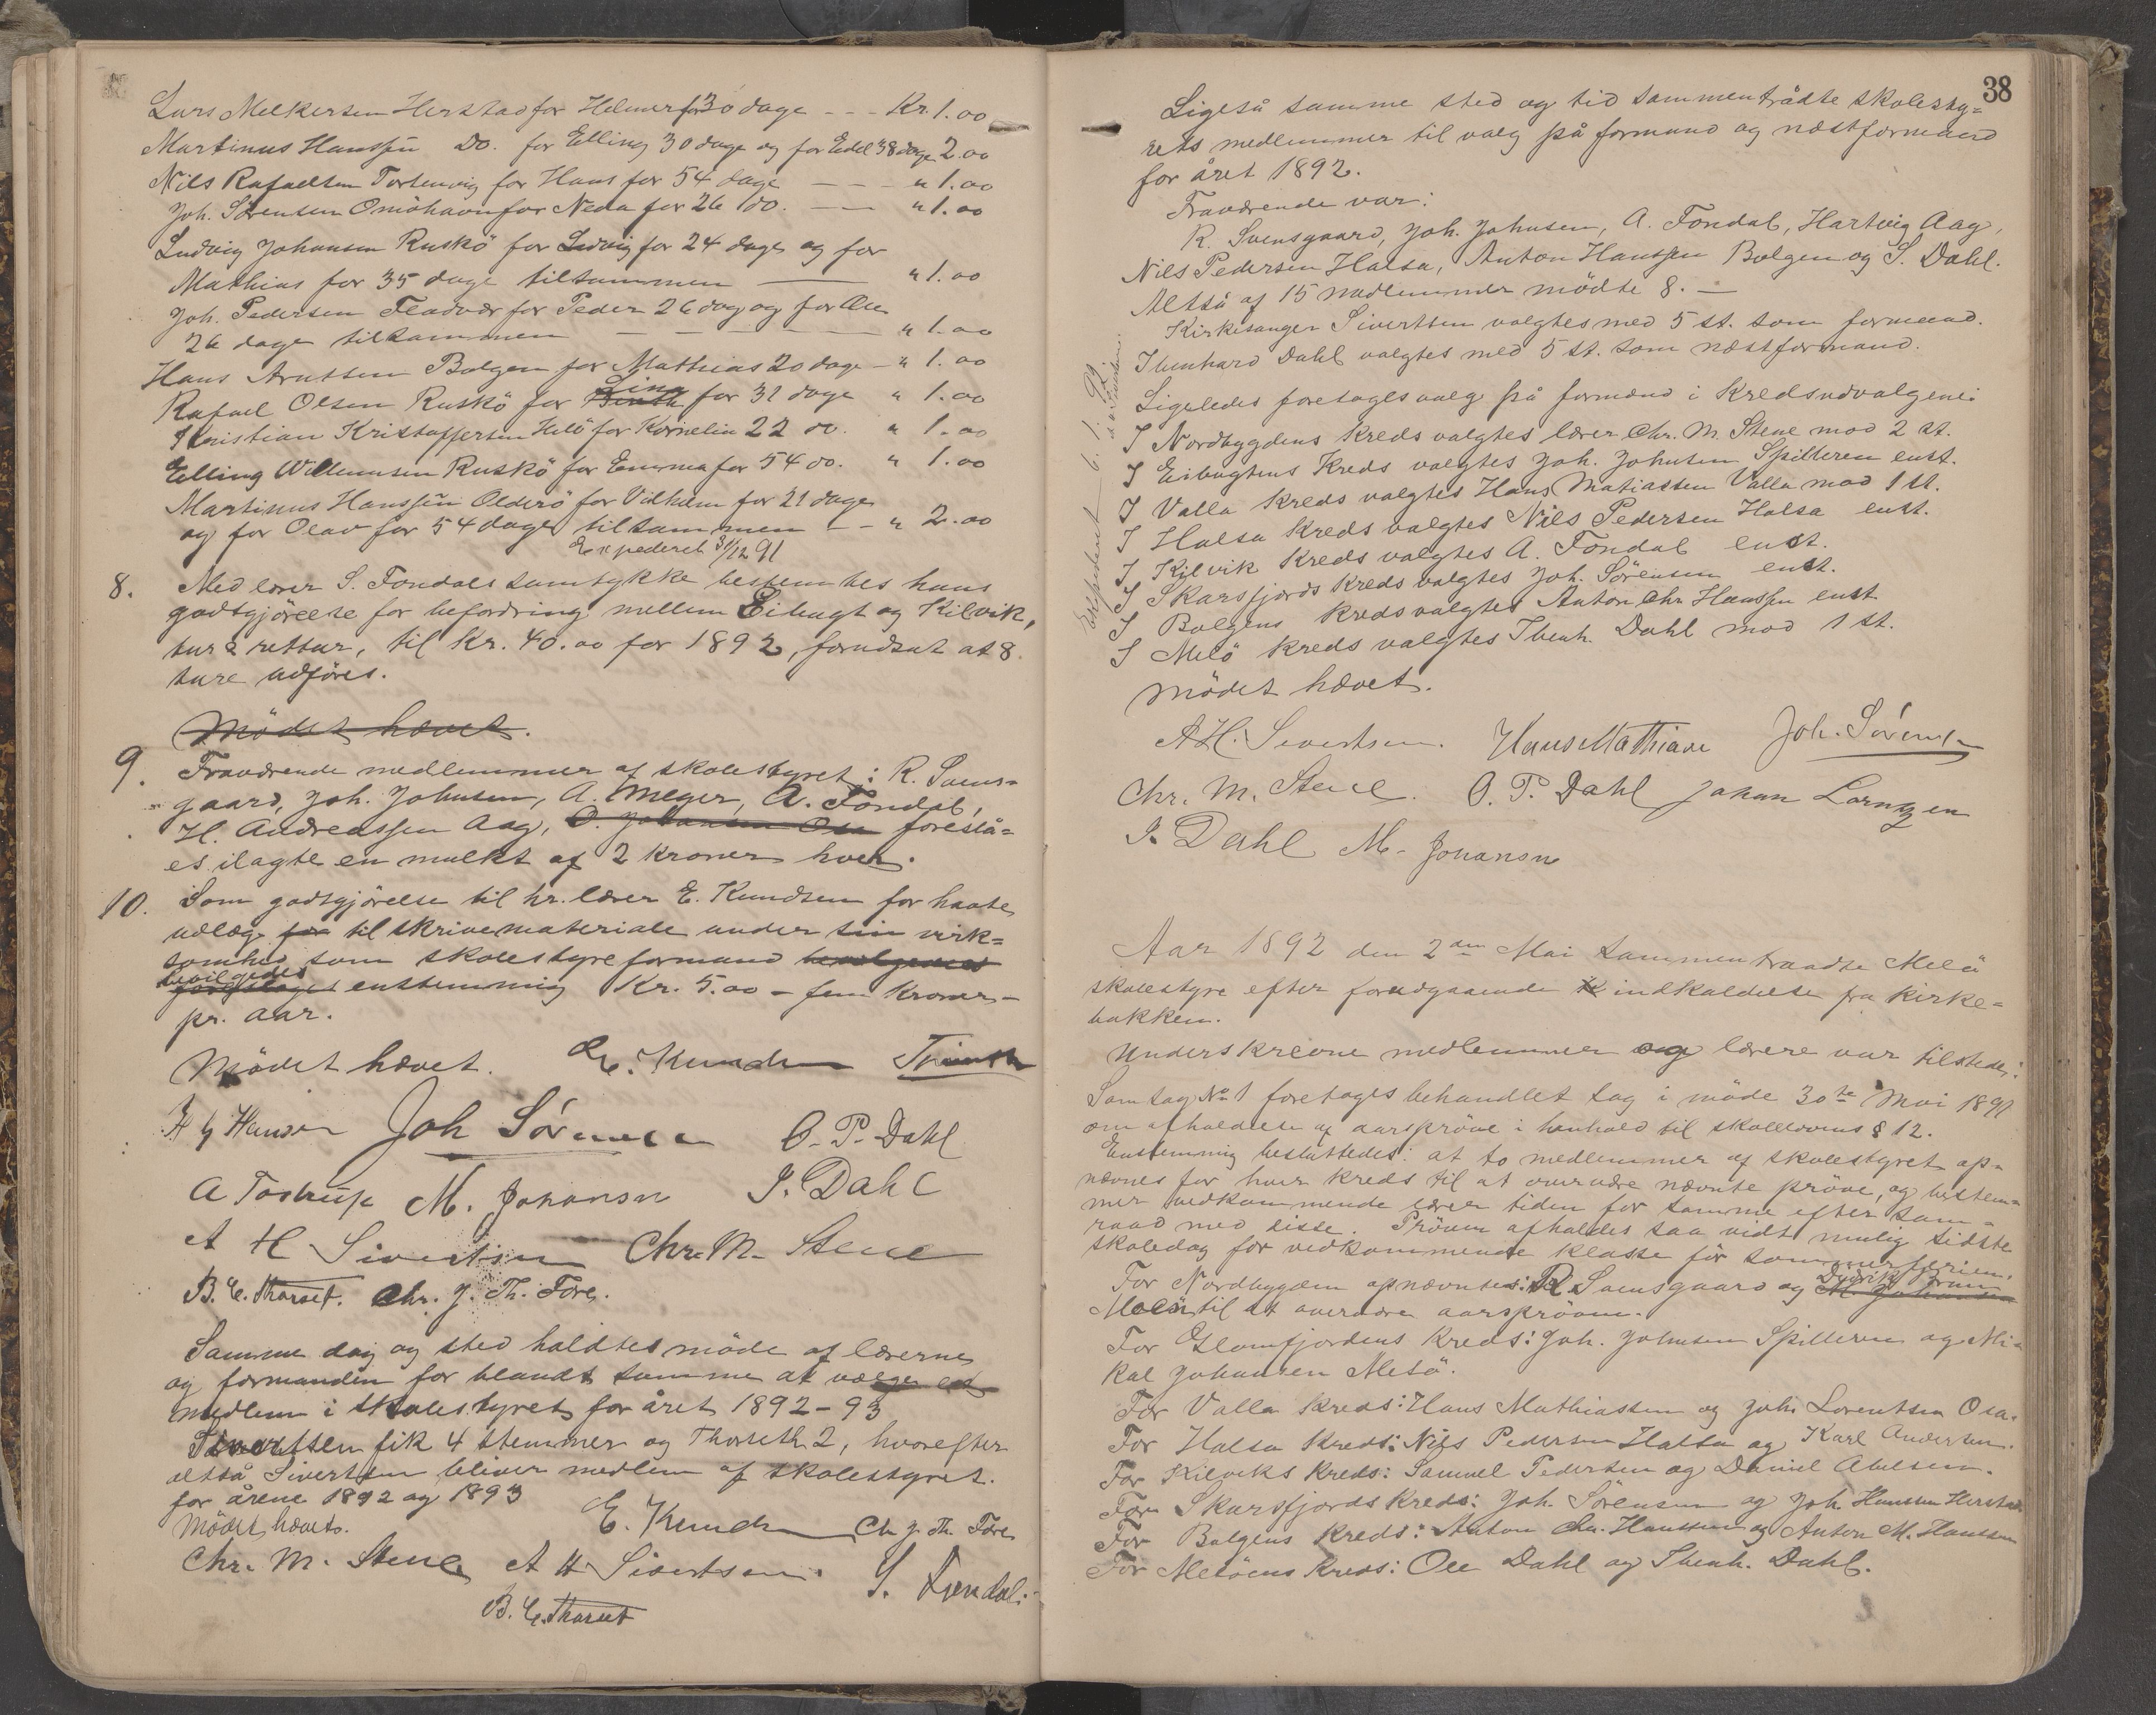 Lars Melkersen Herstad for Helmer for 30 dage - - - Kr. 1.00
Martinus Hanssen Do. for Elling 30 dage og for Edel 38 dage 2.00
Nils Rafaelsen Torsenvig for Hans for 54 dage - - - " 1.00
Joh. Sörensen Omöhavn for Neda for 26 do. - - " 1.00
Ludvig JohansenRuskö for Ludvig for 24 dage og for
Mathias for 35 dage tilsammen - " 1.00
Joh. Pedersen Fladvær for Peder 26 dag og for Ole
26 dage tilsammen - - - - - " 1.00
Hans Arntsen Bolgen for Mathias 20 dage - " 1.00
Rafael Olsen Ruskö for Lina for 31 dage " 1.00
Kristian Kristoffersen Helö for Kornelia 22 do. " 1.00
Elling Willumsen Ruskö for Emma for 54 do. " 1.00
Martinus Hanssen Olderö for Vilhelm for 21 dage
og for Olav for 54 dage tilsammen - - " 2.00
Expederet 31/12 91
8. Med lærer S. Fondals samtykke bestemtes hans
godtgjörelse for befordring mellem Eibugt og Kilvik,
tur & rettur, til Kr. 40.00 for 1892, forudsat at 8
ture udföres.
Mödet hævet.
9. Fraværende medlemmer af skolestyret: R. Svens-
gaard, Joh. Johnsen, A. Meyer, A. Fondal,
H. Andreassen Aag, O. Johansen Osa foreslå-
es ilagte en mulkt af 2 kroner hver.
10. Som godtgjörelse til hr. lærer E. Knudsen for havte
udlæg for til skrivemateriale under sin virk-
somhed som skolestyreformand
bevilgedes
enstemmig Kr. 5.00 - fem Kroner -
pr. aar.
Mödet hævet. E. Knudsen
H G Hansen Joh Sörensen O. P. Dahl
A Tostrup M. Johansn I. Dahl
A H Sivertsen Chr. M. Stene
B. C. Thorset. Chr. J. Th. Fore.
Samme dag og sted holdtes möde af lærerne
og formanden for blandt samme at vælge et
medlem i skolestyret for året 1892-93
Sivertsen fik 4 stemmer og Thorseth 2, hvorefter
altså Sivertsen bliver medlem af skolestyret.
for årene 1892 og 1893
Mödet hævet.
E. Knudsen Ch J. Th Fore
Chr. M. Stene A H Sivertsen. S. Fondal.
B. C. Thorset
38
Ligeså samme sted og tid sammentrådte skolesty-
rets medlemmer til valg på formand og næstformand
for året 1892.
Fraværende var:
R. Svensgaard, Joh. Johnsen, A. Fondal, Hartvig Aag,
Nils Pedersen Halsa, Anton Hanssen Bolgen og S. Dahl.
Altså af 15 medlemmer mödte 8. -
Kirkesanger Sivertsen valgtes med 5 st. som formand.
Ibenhard Dahl valgtes med 5 st. som næstformand.
Ligeledes foretoges valg på formænd i kredsudvalgene:
I Nordbygdens kreds valgtes lærer Chr. M. Stene mod 2 st.
I Eibugtens Kreds valgtes Joh. Johnsen Spilderen enst.
I Valla kreds valgtes Hans Matiassen Valla mod 1 st.
I Halsa Kreds valgtes Nils Pedersen Halsa enst.
I Kilvik Kreds valgtes A. Fondal enst.
I Skarsfjords Kreds valgtes Joh. Sörensen enst.
I Bolgens kreds valgtes Anton Chr Hanssen enst
I Melö kreds valgtes Ibenh. Dahl mod 1 st.
Expederet 6. 1. 92.
Mödet hævet.
A H. Sivertsen. Hans Mathiasen Joh. Sörensen
Chr. M. Stene. O. P. Dahl Johan Lorntzen
I. Dahl M. Johansn
Aar 1892 den 2den Mai sammentraadte Melö
skolestyre efter forudgaaende indkaldelse fra kirke-
bakken.
Underskrevne medlemmer og lærere var tilstede:
Som sag No 1 foretoges behandlet sag i möde 30te Mai 1891
om afholdelse af aarspröve i henhold til skolelovens § 12.
Enstemmig besluttedes: at to medlemmer af skolestyret op-
nævnes for hver kreds til at overvære nævnte pröve, og bestem-
mer vedkommende lærer tiden for samme efter sam-
raad med disse. Pröven afholdes saa vidt mulig sidste
skoledag for vedkommende klasse för sommerferien.
For Nordbygden opnævntes: R Svensgaard og Didrik
Melö til at overvære aarspröven.
For Glomfjordens Kreds: Joh. Johnsen Spilderen og Mi-
kal Johansen Mesö.
For Valla Kreds: Hans Mathiassen og Joh. Lorentsen Osa.
For Halsa Kreds: Nils Pedersen Halsa og Karl Andersen.
For Kilviks Kreds: Samuel Pedersen og Daniel Abelsen.
For Skarsfjords Kreds: Joh. Sörensen og Joh Hanssen Herstad.
For Bolgens Kreds: Anton Chr. Hanssen og Anton M. Hanssen
For Melöens Kreds: Ole Dahl og Ibenh. Dahl.